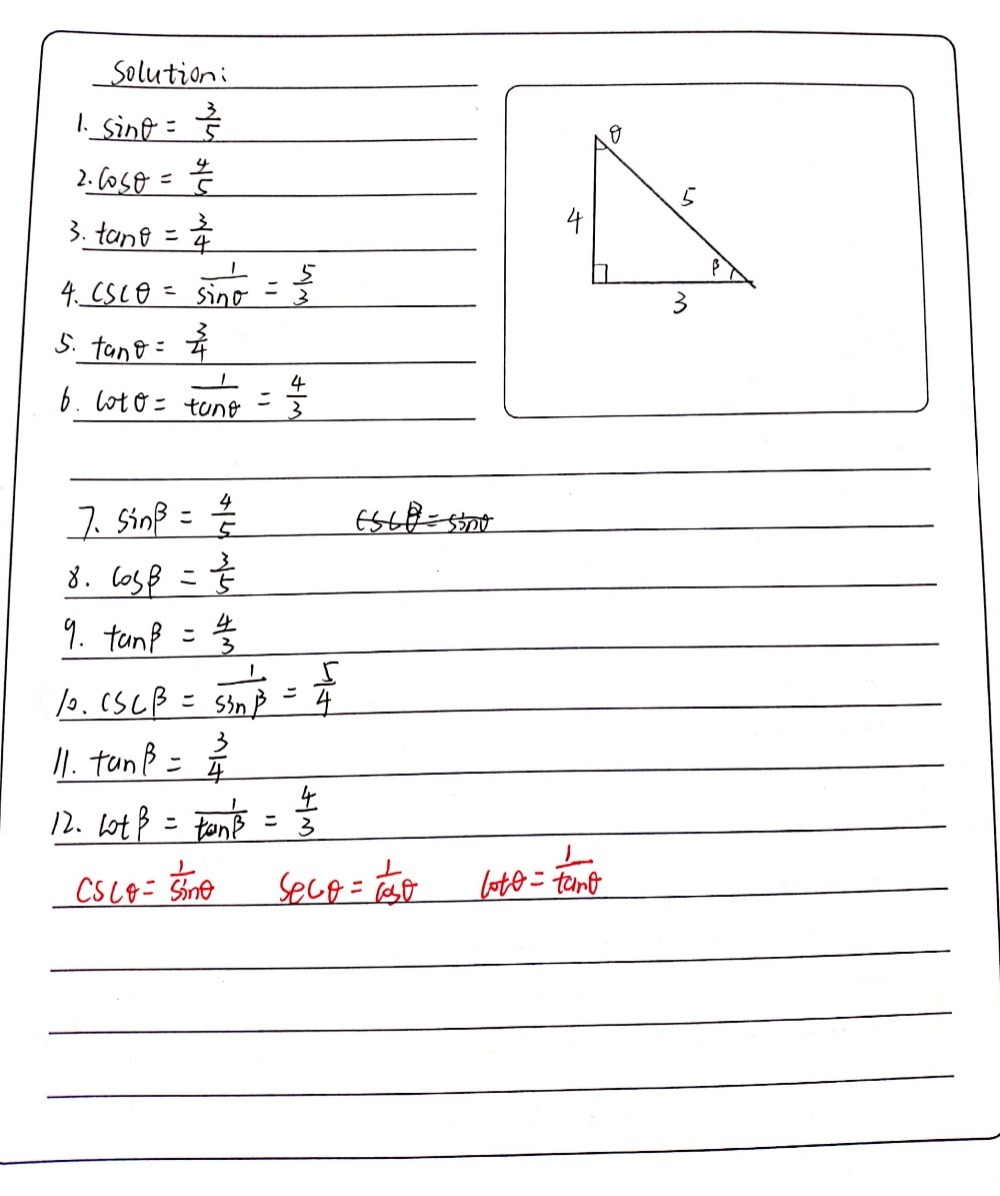 Solution:
1. sinθ = 3/5
2. cosθ = 4/5
3. tanθ = 3/4
4. cscθ = 1/sinθ = 5/3
5. tanθ = 3/4
6. cotθ = 1/tanθ = 4/3
θ
4
5
β
3
7. sinβ = 4/5 cscβ = sinθ
8. cosβ = 3/5
9. tanβ = 4/3
10. cscβ = 1/sinβ = 5/4
11. tanβ = 3/4
12. cotβ = 1/tanβ = 4/3
cscθ = 1/sinθ secθ = 1/cosθ cotθ = 1/tanθ